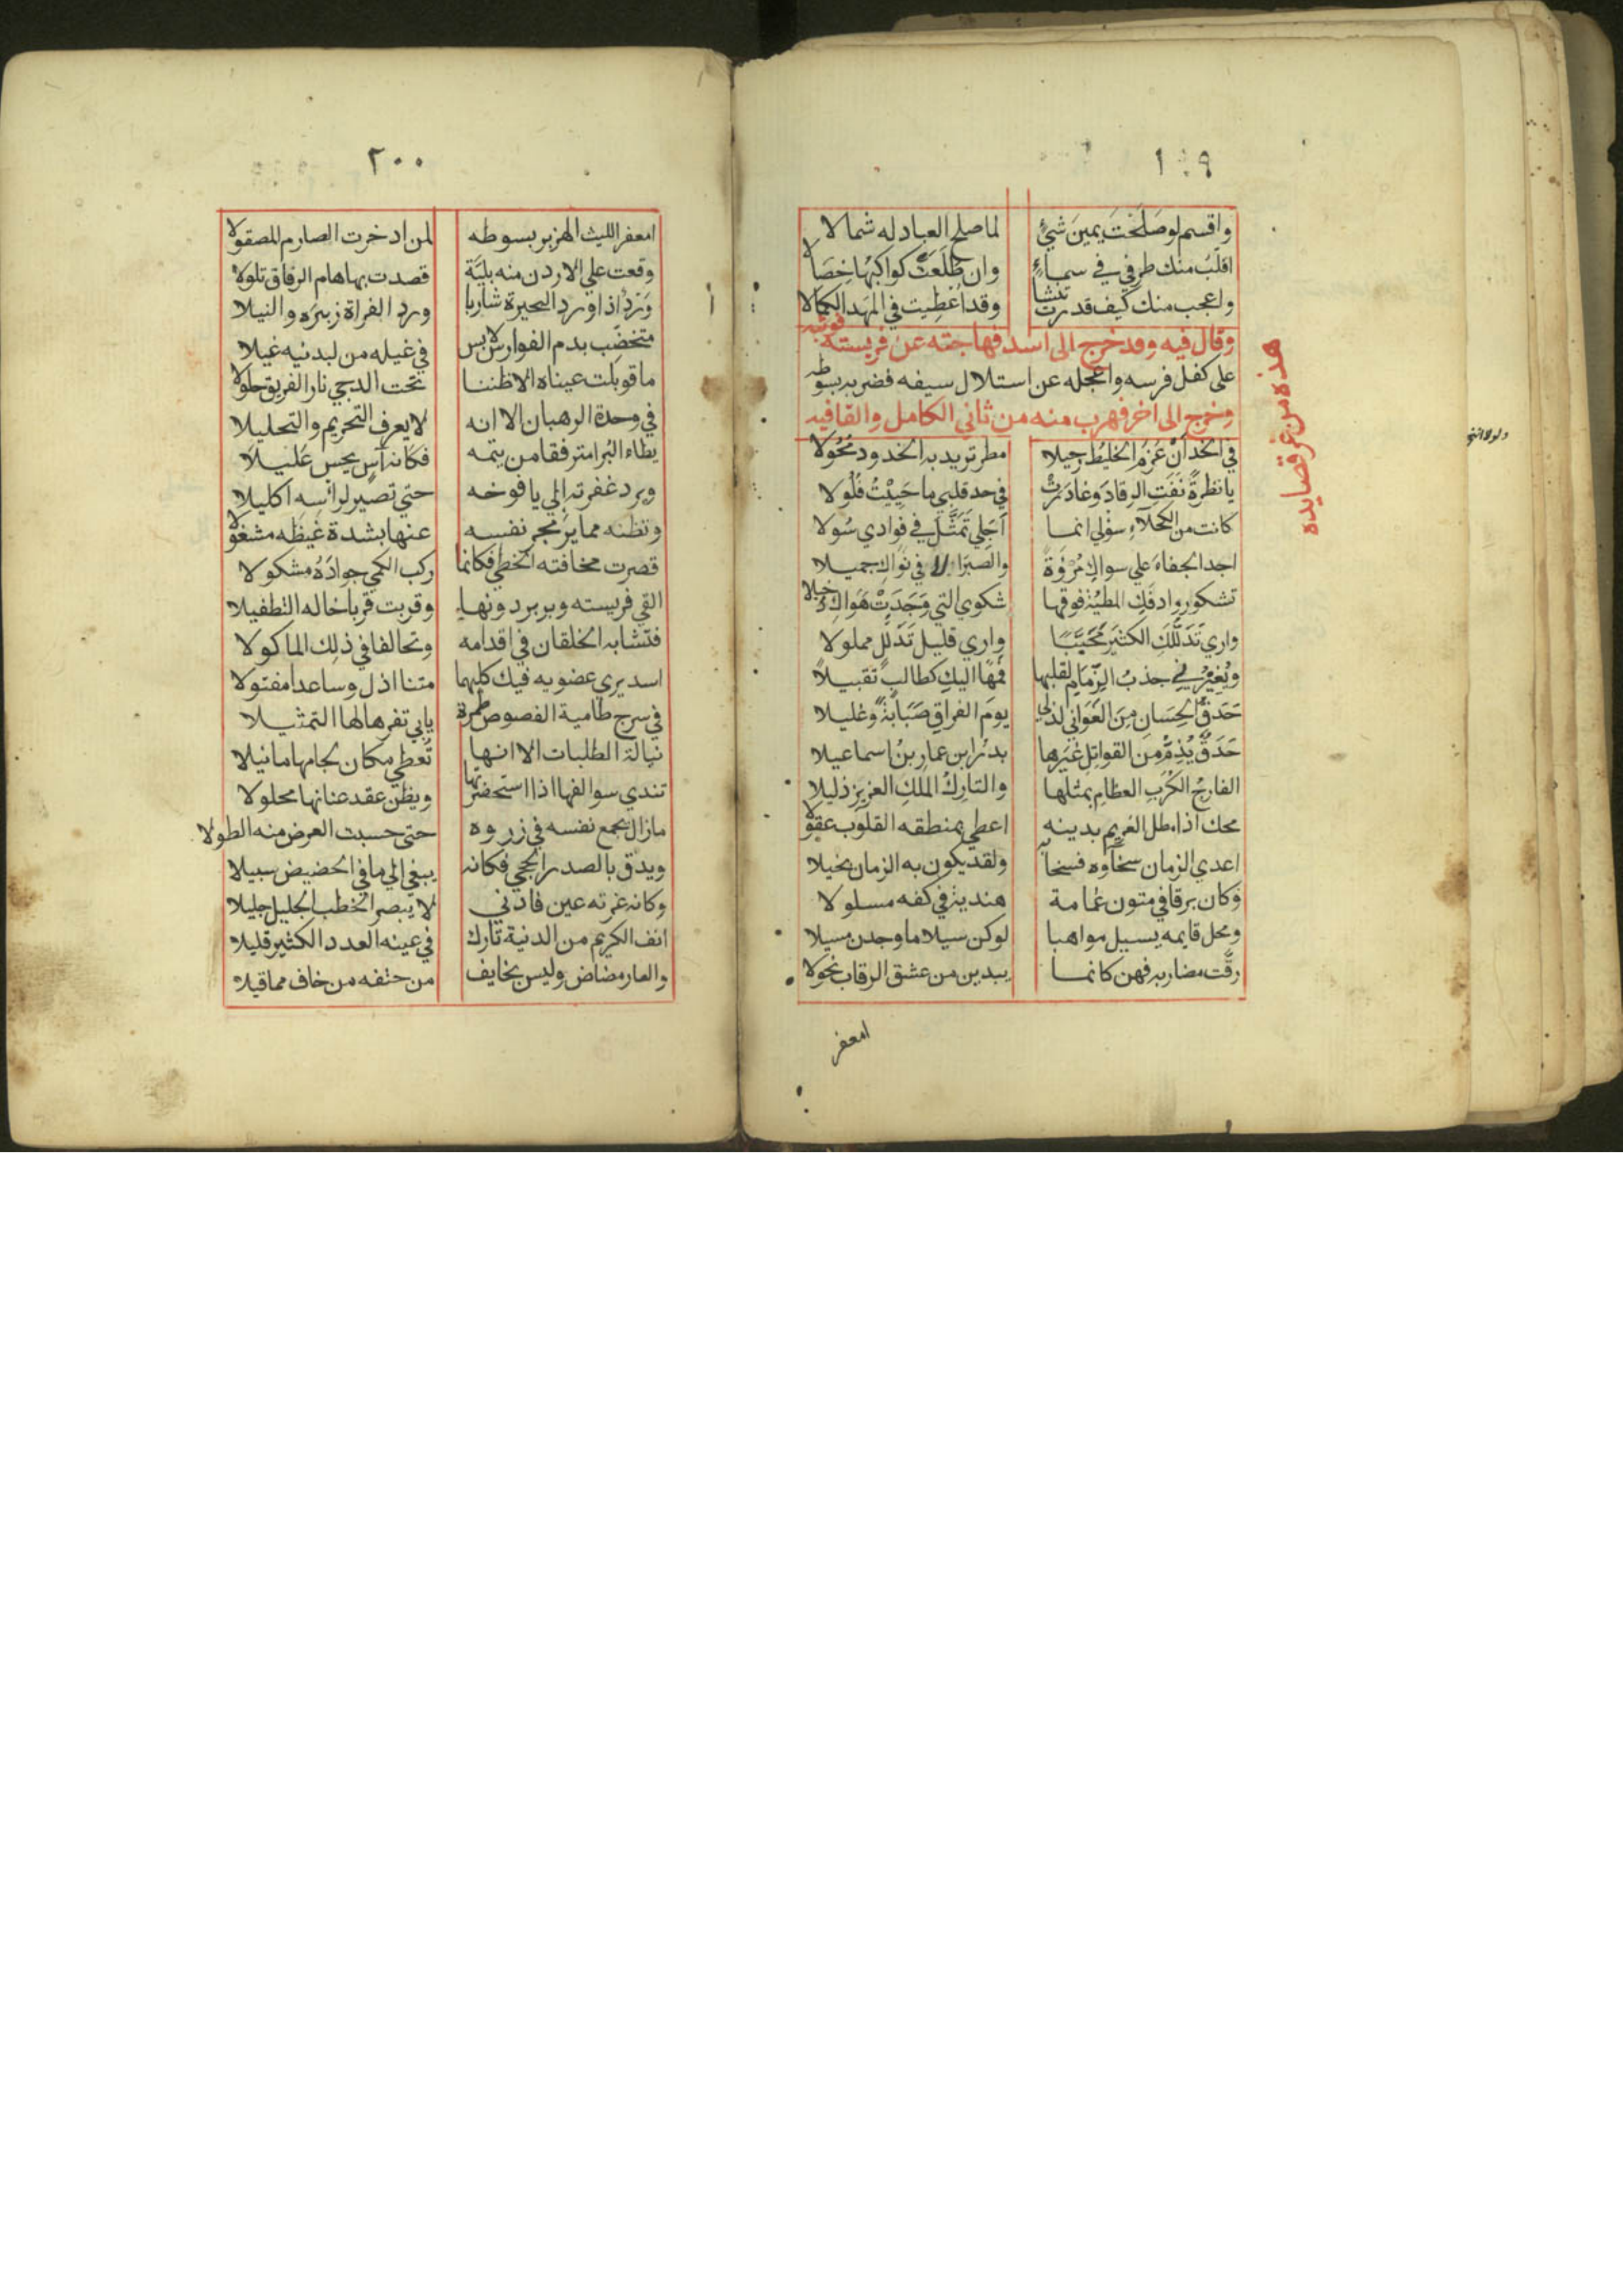 ١٩٩
واقسم لو صلحت يمين شيء لما صلح العباد له شمالا
اقلب منك طرفي في سماء وان طلعت كواكبها خصالا
واعجب منك كيف قدرت تنشا وقد اعطيت في المهد الكمالا
وقال فيه وقد خرج الى اسد فهاجته عن فريسته فوثب
على كفل فرسه واعجله عن استلال سيفه فضربه بسوطه
وخرج الى اخر فهرب منه من ثاني الكامل والقافيه
هذه من غر قصايده
في الخد أن عزم الخليط رحيلا مطر تزيد به الخدود محولا
يا نظرة نفت الرقاد وغادرت في حد قلبي ما حييت فلولا
كانت من الكحلاء سؤلي انما أجلي تمثل في فوادي سولا
اجد الجفاء علي سواك مروة والصبر الا في نواك جميلا
تشكو روادفك المطية فوقها شكوي التي وجدت هواك دخيلا
واري تدللك الكثير محببا واري قليل تدلل مملولا
ويغيرني جذب الزمام لقلبها فمها اليك كطالب تقبيلا
حدق الحسان من الغواني لذلي يوم الفراق صبابة وغليلا
حدق يذم من القواتل غيرها بدر ابن عمار بن اسماعيلا
الفارج الكرب العظام بمثلها والتارك الملك العزيز ذليلا
محك اذا مطل الغريم بدينه اعطي بمنطقه القلوب عقولا
اعدي الزمان سخاوه فسخا به ولقد يكون به الزمان بخيلا
وكان برقا في متون غمامة هندية في كفه مسلولا
ومحل قايمه يسيل مواهبا لو كن سيلا ما وجدن مسيلا
رقت مضاربه فهن كانما يبدين من عشق الرقاب نحولا
امعفر
٢٠٠
امعفر الليث الهزبر بسوطه لمن ادخرت الصارم المصقولا
وقعت علي الاردن منه بلية قصدت بها هام الرفاق تلولا
ورد اذا ورد البحيرة شاربا ورد الفراة زبيره والنيلا
متخضب بدم الفوارس لابس في غيله من لبدتيه غيلا
ما قوبلت عيناه الا ظننا تحت الدجي نار الفريق حلولا
في وحدة الرهبان الا انه لا يعرف التحريم والتحليلا
يطاء البرا مترفقا من يتمه فكانه آس يجس عليلا
ويرد غفرته إلي يافوخه حتي تصير لرأسه اكليلا
وتظنه مما يزمجر نفسه عنها بشدة غيظه مشغولا
قصرت مخافته الخطي فكانما ركب الكمي جواده مشكولا
القي فريسته وبربر دونها وقربت قربا خاله التطفيلا
فتشابه الخلقان في اقدامه وتخالفا في ذلك الماكولا
اسد يري عضويه فيك كليهما متنا اذل وساعدا مفتولا
في سرج طامية الفصوص طمرة يابي تفرها لها التمثيلا
نيالة الطلبات الا انها تعطي مكان لجامها ما نيلا
تندي سوالفها اذا استحضرتها ويظن عقد عنانها محلولا
ما زال يجمع نفسه في زوره حتى حسبت العرض منه الطولا
ويدق بالصدر الحجي فكانه يبغي إلي ما في الحضيض سبيلا
وكانه غرته عين فادني لا يبصر الخطب الجليل جليلا
انف الكريم من الدنية تارك في عينه العدد الكثير قليلا
والعار مضاض وليس بخايف من حتفه من خاف مما قيلا